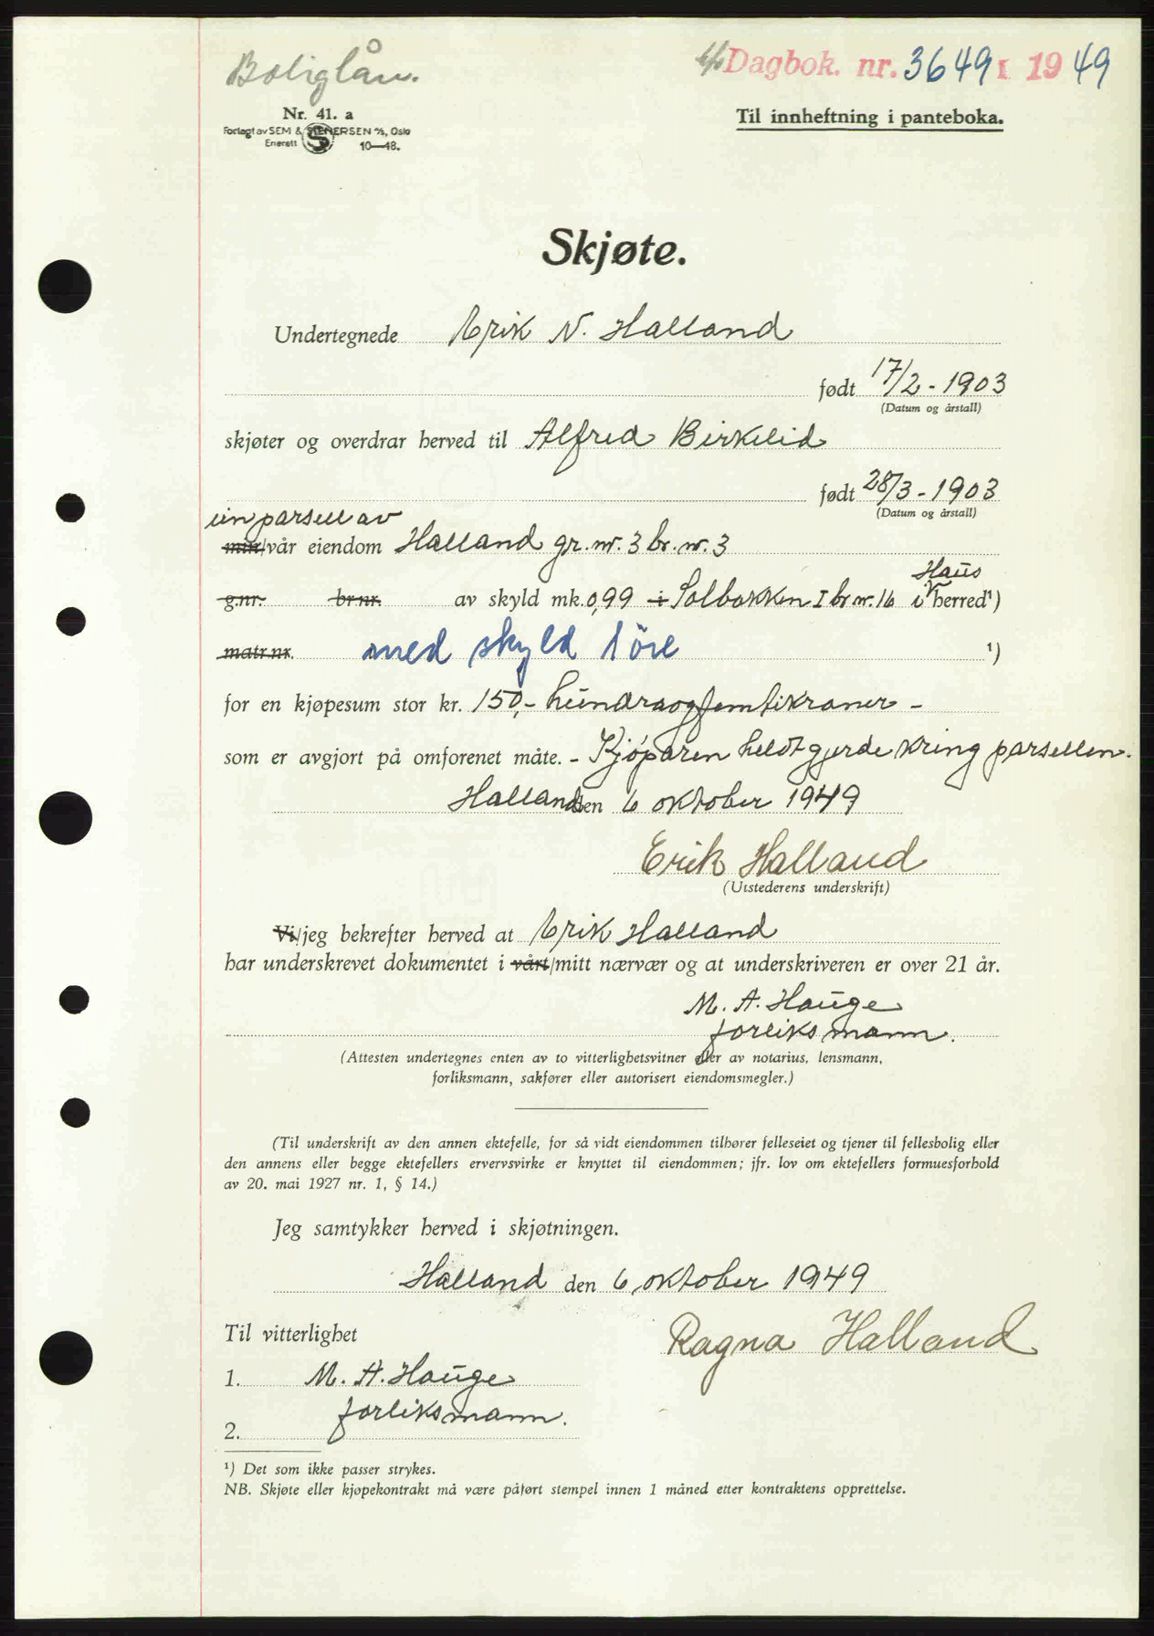 Boliglån.
Dagbok. nr. 3649 1949
Nr. 41. a
Forlagt av SEM & STENERSEN A/S, Oslo
Enerett 10—48.
Til innheftning i panteboka.
Skjøte.
Undertegnede Erik N. Halland
født 17/2 - 1903
(Datum og årstall)
skjøter og overdrar herved til Alfred Birkelid
født 28/3 - 1903
(Datum og årstall)
ein parsell av
min/vår eiendom Halland gr. nr. 3 br. nr. 3
Haus
g.nr. br.nr. av skyld mk. 0,99 i Solbakken I br nr. 16 i herred¹)
matr.nr. med skyld 1 öre ¹)
for en kjøpesum stor kr. 150,- hundraogfemtikroner -
som er avgjort på omforenet måte. - Kjöparen heldt gjerde kring parsellen.
Halland den 6 oktober 1949
Erik Halland
(Utstederens underskrift)
Vi/jeg bekrefter herved at Erik Halland
har underskrevet dokumentet i vårt/mitt nærvær og at underskriveren er over 21 år.
M. A. Hauge
forliksmann.
(Attesten undertegnes enten av to vitterlighetsvitner eller av notarius, lensmann,
forliksmann, sakfører eller autorisert eiendomsmegler.)
(Til underskrift av den annen ektefelle, for så vidt eiendommen tilhører felleseiet og tjener til fellesbolig eller
den annens eller begge ektefellers ervervsvirke er knyttet til eiendommen; jfr. lov om ektefellers formuesforhold
av 20. mai 1927 nr. 1, § 14.)
Jeg samtykker herved i skjøtningen.
Halland den 6 oktober 1949
Til vitterlighet
Ragna Halland
1. M. A. Hauge
forliksmann.
2.
¹) Det som ikke passer strykes.
NB. Skjøte eller kjøpekontrakt må være påført stempel innen 1 måned etter kontraktens opprettelse.